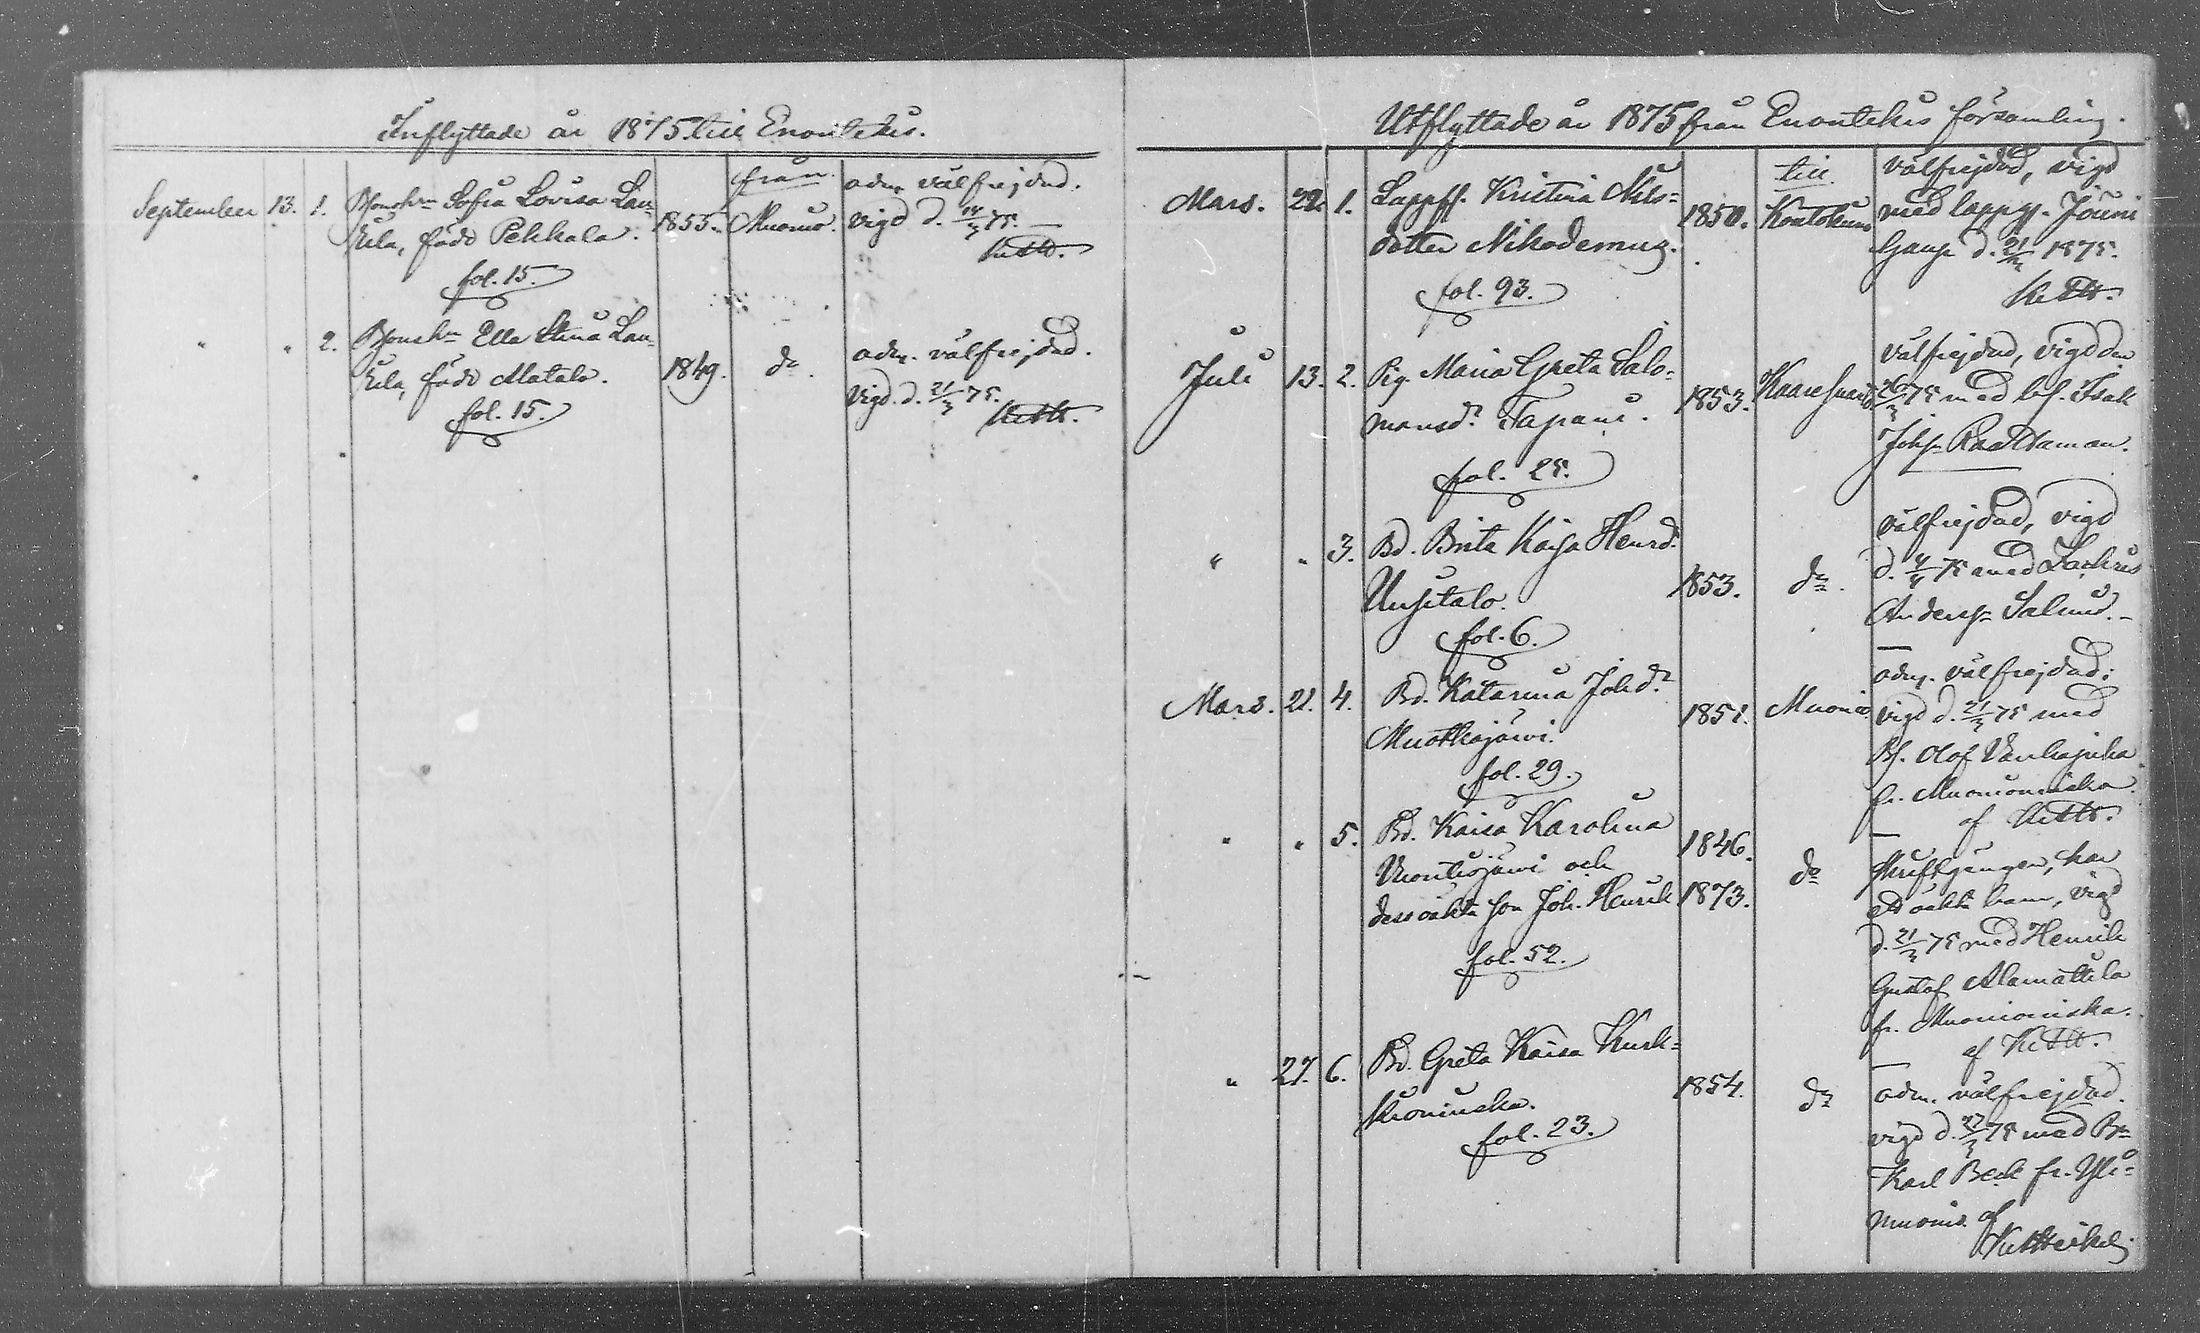 Inflyttade år 1875 till Enontekis.
från
September 13. 1. Bonehn Sofia Lovisa Lau- 1855. Muonio. adm. välfrejdad.
kila, född Pekkala. vigd d. 14/3 75.
fol. 15.
" " 2. Bonehn Ella Stina Lau- 1849. do adm. välfrejdad.
kila, född Matala. vigd. d. 21/3 75.
fol. 15.
Utflyttade år 1875 från Enontekis församling.
till
Mars. 22. 1. Lappfl. Kristina Nils- 1850. Koutokeino välfrejdad, vigd
dotter Nikodemus. med lappg. Jouni
fol. 93. Gaup d. 21/3 1875.
Juli 13. 2. Pig. Maria Greta Salo- 1853. Karesuando välfrejdad, vigd den
monsdr Tapani. 26/3 75 med Isak
fol. 25. Johsn Raattamaa.
" " 3. Bd. Brita Kajsa Henrd. 1853. do. välfrejdad, vigd
Uusitalo. d. 4/4 75 med Zachris
fol. 6. Andersn Salmi.
Mars. 21. 4. Bd. Katarina Johdr 1851. Muonio adm. välfrejdad;
Muotkajärvi. vigd d. 21/3 75 med
fol. 29. Bs. Olof Vanhajuha
fr. Muonioniska
af
" " 5. Bd. Kaisa Karolina 1846. do Skriftgången, har
Vuontisjärvi och ett oäkta barn, vigd
dess oäkta son Joh. Henrik 1873. d. 21/3 75 med Henrik
fol. 52. Gustaf Alamattila
fr. Muonioniska.
af
" 27. 6. Bd. Greta Kaisa Kurk- 1854. do adm. välfrejdad.
kioniska. vigd d. 27/3 75 med Bn
fol. 23. Karl Beck fr. Yli-
muonio. af